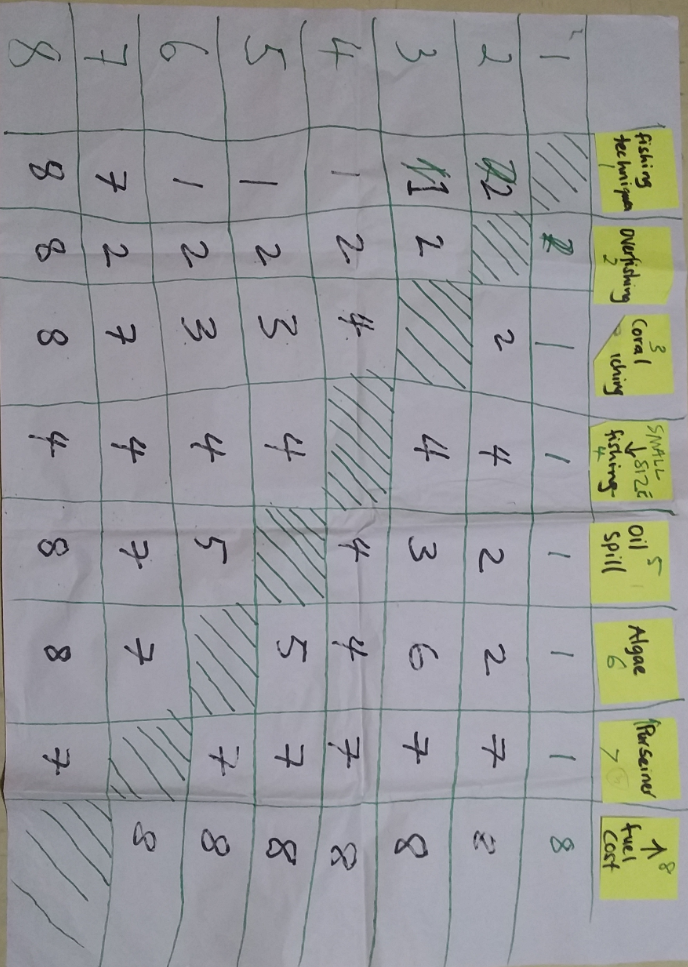 fishing techniques 1
Overfishing 2
Coral 3
iching
SMALL
↓ SIZE
fishing 4
Oil 5
Spill
Algae 6
Purseiner 7
↑ 8
fuel
cost
1 2 1 1 1 1 1 8
2 2 2 4 2 2 7 2
3 1 2 4 3 6 7 8
4 1 2 4 4 4 7 8
5 1 2 3 4 5 7 8
6 1 2 3 4 5 7 8
7 7 2 7 4 7 7 8
8 8 8 8 4 8 8 7